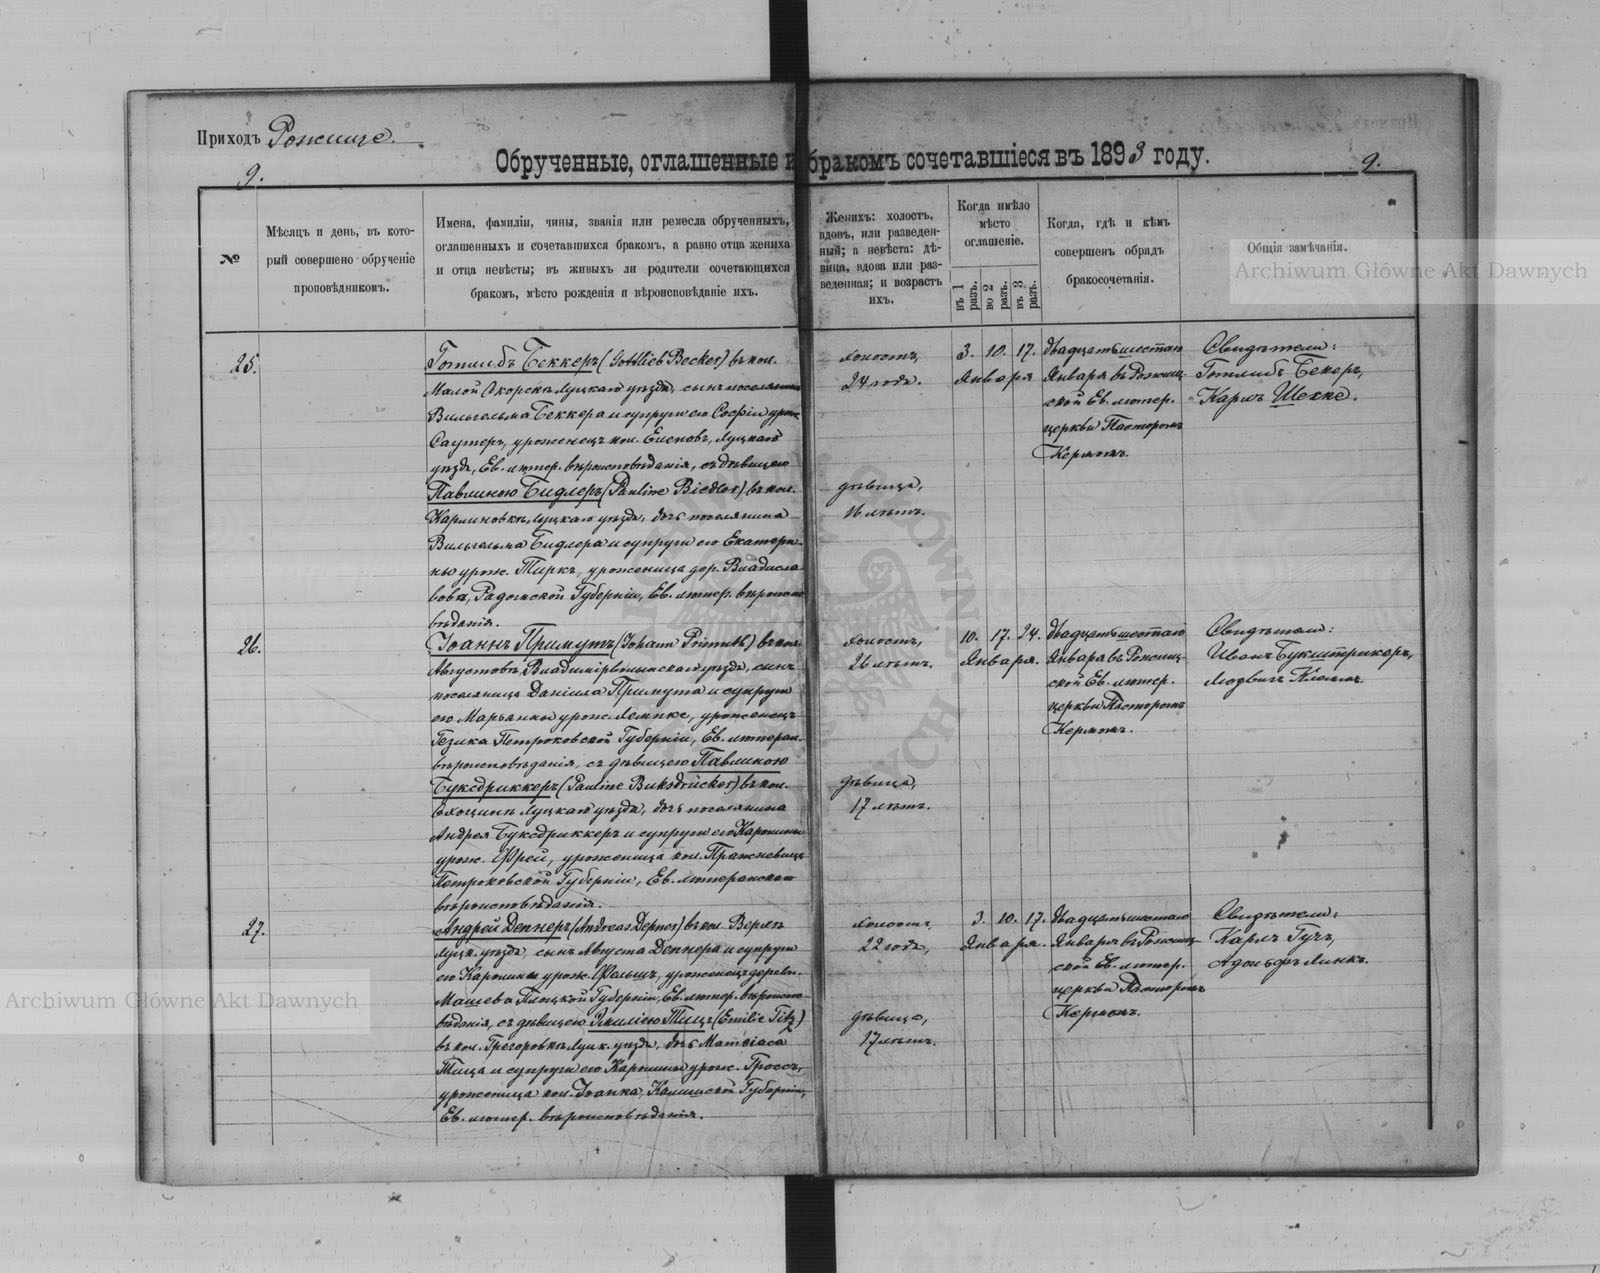 Приходъ Рожище.
Обрученные, оглашенные и бракомъ сочетавшіеся въ 1893 году.
9.
9.
№
Мѣсяцъ и день, въ кото-
рый совершено обрученіе
проповѣдникомъ.
Имена, фамиліи, чины, званія или ремесла обрученныхъ,
оглашенныхъ и сочетавшихся бракомъ, а равно отца жениха
и отца невѣсты; въ живыхъ ли родители сочетающихся
бракомъ, мѣсто рожденія и вѣроисповѣданіе ихъ.
Женихъ: холостъ,
вдовъ, или разведен-
ный; а невѣста: дѣ-
вица, вдова или раз-
веденная; и возрастъ
ихъ.
Когда имѣло
мѣсто
оглашеніе.
въ 1 разъ.
во 2 разъ.
въ 3 разъ.
Когда, гдѣ и кѣмъ
совершенъ обрядъ
бракосочетанія.
Общія замѣчанія.
Archiwum Główne Akt Dawnych
25.
Готлибъ Беккеръ (Gottlieb Becker) въ кол.
Малой Луцкаго уѣзда, сынъ поселянина
Вильгельма Беккера и супруги его Софіи урож.
Саутеръ, уроженецъ кол. Луцкаго
уѣзда, Ев. лютер. вѣроисповѣданія, съ дѣвицею
Павлиною Бидлеръ (Pauline Biedler) въ кол.
Кариновкѣ Луцкаго уѣзда, дочь поселянина
Вильгельма Бидлера и супруги его Екатери-
ны урож. Тиркъ, уроженица дер. Владисла-
вовъ, Радомской Губерніи, Ев. лютер. вѣроиспо-
вѣданія.
холостъ,
24 года.
дѣвица,
16 лѣтъ.
3. 10. 17.
Января
Двадцать шестаго
Января въ Рожищ-
ской Ев. лютер.
церкви Пасторомъ
Керномъ.
Свидѣтели:
Готлибъ Бекеръ,
Карлъ Шехке.
26.
Іоаннъ Примутъ (Johann Primuth) въ кол.
Августовъ Владимірволынскаго уѣзда, сынъ
поселянина Даніила Примута и супруги
его Марьянны урож. Лемпке, уроженецъ
Гезика Петроковской Губерніи, Ев. лютеран.
вѣроисповѣданія, съ дѣвицею Павлиною
Буксдриккеръ (Pauline Buksdrücker) въ кол.
Луцкаго уѣзда, дочь поселянина
Андрея Буксдриккеръ и супруги его Каролины
урож. Фрей, уроженица кол. Пражневицъ
Петроковской Губерніи, Ев. лютеранскаго
вѣроисповѣданія.
холостъ,
26 лѣтъ.
дѣвица,
17 лѣтъ.
10. 17. 24.
Января.
Двадцать шестаго
Января въ Рожищ-
ской Ев. лютер.
церкви Пасторомъ
Керномъ.
Свидѣтели:
Иванъ Букштрикеръ,
Людвигъ Клемъ.
27.
Андрей Депнеръ (Andreas Depner) въ кол. Верлѣ
Луцк. уѣзда, сынъ Августа Депнера и супруги
его Каролины урож. Фельшъ, уроженецъ деревн.
Мащева Плоцкой Губерніи, Ев. лютер. вѣроиспо-
вѣданія, съ дѣвицею Эмиліею Тицъ (Emilie Titz)
въ кол. Грегоровкѣ Луцк. уѣзда, дочь Матѳіаса
Тица и супруги его Каролины урож. Гроссъ,
уроженица кол. Іоанка, Калишской Губерніи,
Ев. лютер. вѣроисповѣданія.
холостъ,
22 года,
дѣвица,
17 лѣтъ.
3. 10. 17.
Января.
Двадцать шестаго
Января въ Рожищ-
ской Ев. лютер.
церкви Пасторомъ
Керномъ.
Свидѣтели:
Карлъ Гучъ,
Адольфъ Линкъ.
Archiwum Główne Akt Dawnych